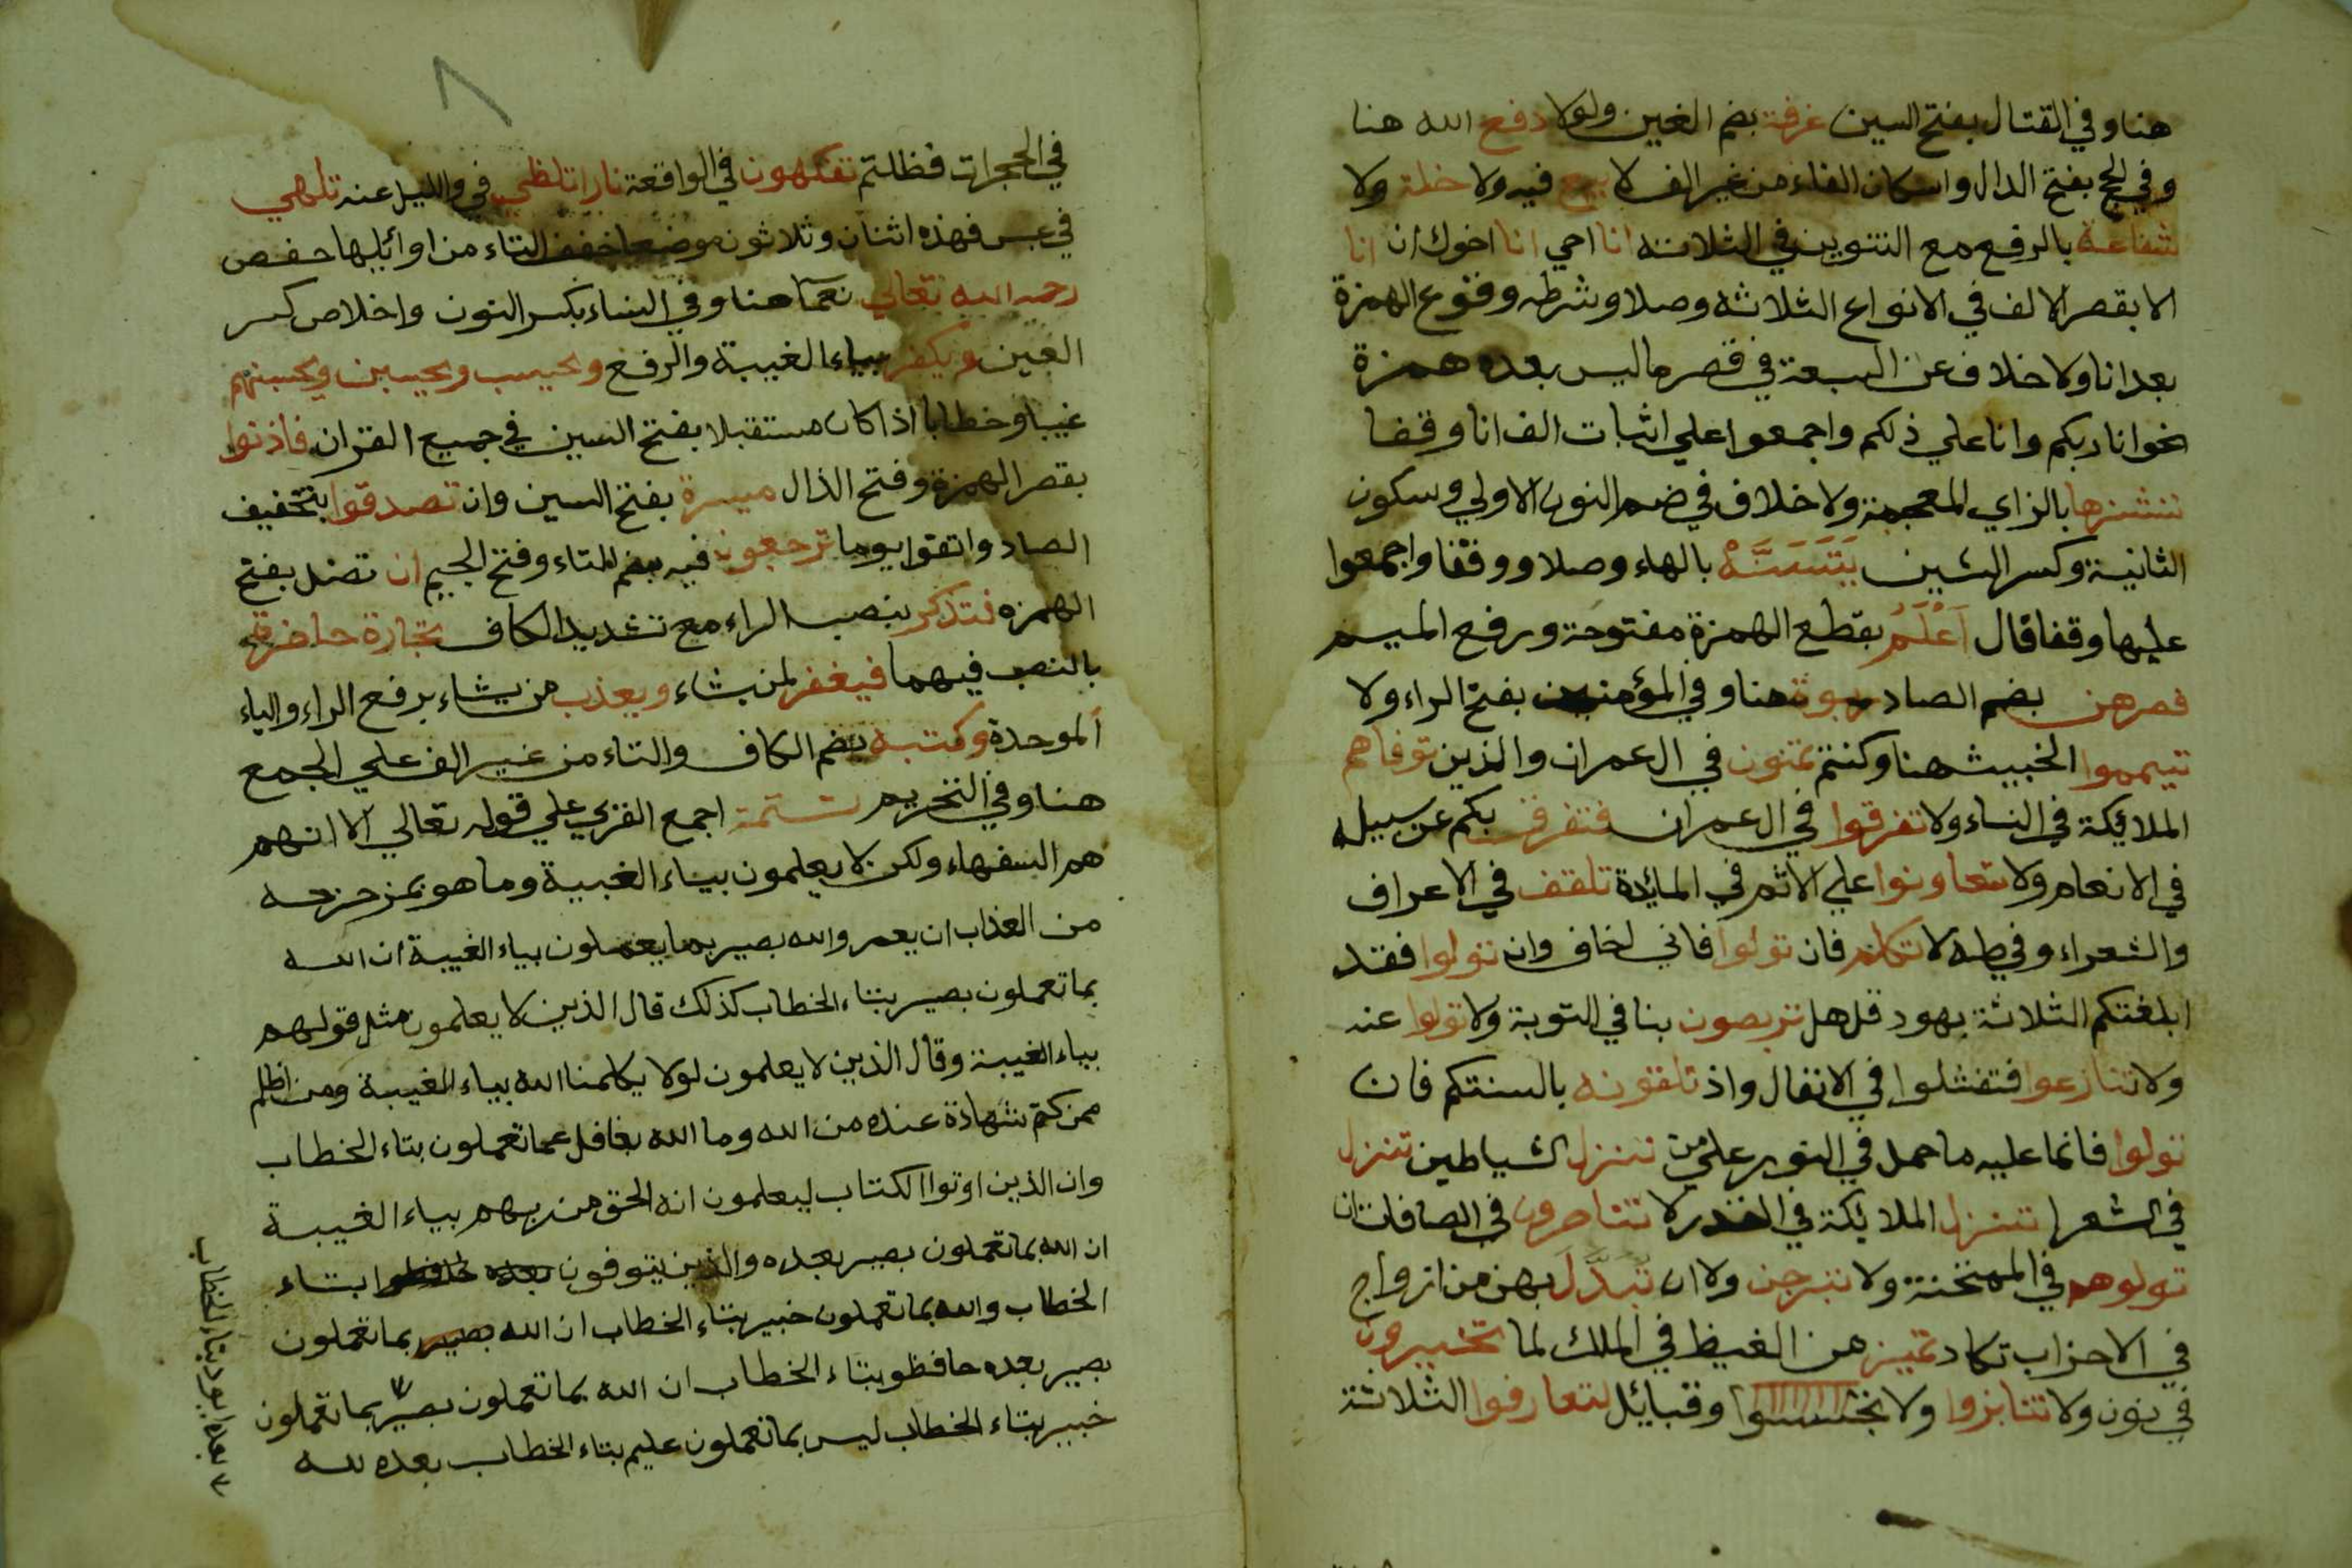 هنا وفي القتال بفتح السين غرفة بضم الغين ولولا دفع الله هنا
وفي الحج بفتح الدال واسكان الفاء من غير الف لا بيع فيه ولا خلة ولا
شفاعة بالرفع مع التنوين في الثلاثة انا احي انا اخوك ان انا
الا بقصر الالف في الانواع الثلاثة وصلا وشرطه وقوع الهمزة
بعد انا ولا خلاف عن السبعة في قصر ما ليس بعده همزة
نحو انا ربكم وانا علي ذلكم واجمعوا علي اثبات الف انا وقفا
ننشزها بالزاي المعجمة ولا خلاف في ضم النون الاولي وسكون
الثانية وكسر الشين يَتَسَنَّهْ بالهاء وصلا ووقفا واجمعوا
عليها وقفا قال اَعْلَمُ بقطع الهمزة مفتوحة ورفع الميم
فصرهن بضم الصاد بربوة هنا وفي المؤمنين بفتح الراء ولا
تيمموا الخبيث هنا وكنتم تمنون في ال عمران والذين توفاهم
الملائكة في النساء ولا تفرقوا في ال عمران فتفرق بكم عن سبيله
في الانعام ولا تعاونوا علي الاثم في المائدة تلقف في الاعراف
والشعراء وفي طه لا تكلم فان تولوا فاني اخاف وان تولوا فقد
ابلغتكم الثلاثة بهود قل هل تربصون بنا في التوبة ولا تولوا عنه
ولا تنازعوا فتفشلوا في الانفال واذ تلقونه بالسنتكم فان
تولوا فانما عليه ما حمل في النور علي من تنزل الشياطين تنزل
في الشعرا تنزل الملائكة في القدر لا تناصرون في الصافات ان
تولوهم في الممتحنة ولا تبرجن ولا ان تَبَدَّلَ بهن من ازواج
في الاحزاب تكاد تميز من الغيظ في الملك لما تخيرون
في نون ولا تنابزوا ولا تجسسوا وقبائل لتعارفوا الثلاثة
٨
في الحجرات فظلتم تفكهون في الواقعة نارا تلظي في والليل عنه تلهي
في عبس فهذه اثنان وثلاثون موضعا خفف التاء من اوائلها حفص
رحمه الله تعالي نعما هنا وفي النساء بكسر النون واخلاص كسر
العين ويكفر بياء الغيبة والرفع ويحسب ويحسبن ويحسبنهم
غيبا وخطابا اذا كان مستقبلا بفتح السين في جميع القران فاذنوا
بقصر الهمزة وفتح الذال ميسرة بفتح السين وان تصدقوا بتخفيف
الصاد واتقوا يوما ترجعون فيه بضم التاء وفتح الجيم ان تضل بفتح
الهمزه فتذكر بنصب الراء مع تشديد الكاف تجارة حاضرة
بالنصب فيهما فيغفر لمن يشاء ويعذب من يشاء برفع الراء والباء
الموحدة وكتبه بضم الكاف والتاء من غير الف علي الجمع
هنا وفي التحريم تتمة اجمع القري علي قوله تعالي الا انهم
هم السفهاء ولكن لا يعلمون بياء الغيبة وما هو بمزحزحه
من العذاب ان يعمر والله بصير بما يعملون بياء الغيبة ان الله
بما تعملون بصير بتاء الخطاب كذلك قال الذين لا يعلمون مثل قولهم
بياء الغيبة وقال الذين لا يعلمون لولا يكلمنا الله بياء الغيبة ومن اظلم
ممن كتم شهادة عنده من الله وما الله بغافل عما تعملون بتاء الخطاب
وان الذين اوتوا الكتاب ليعلمون انه الحق من ربهم بياء الغيبة
ان الله بما تعملون بصير بعده والذين يتوفون بتاء
الخطاب والله بما تعملون خبير بتاء الخطاب ان الله بصير بما تعملون
بصير بعده حافظو بتاء الخطاب ان الله بما تعملون بصير بما تعملون
خبير بتاء الخطاب ليس بما تعملون عليم بتاء الخطاب بعده لله